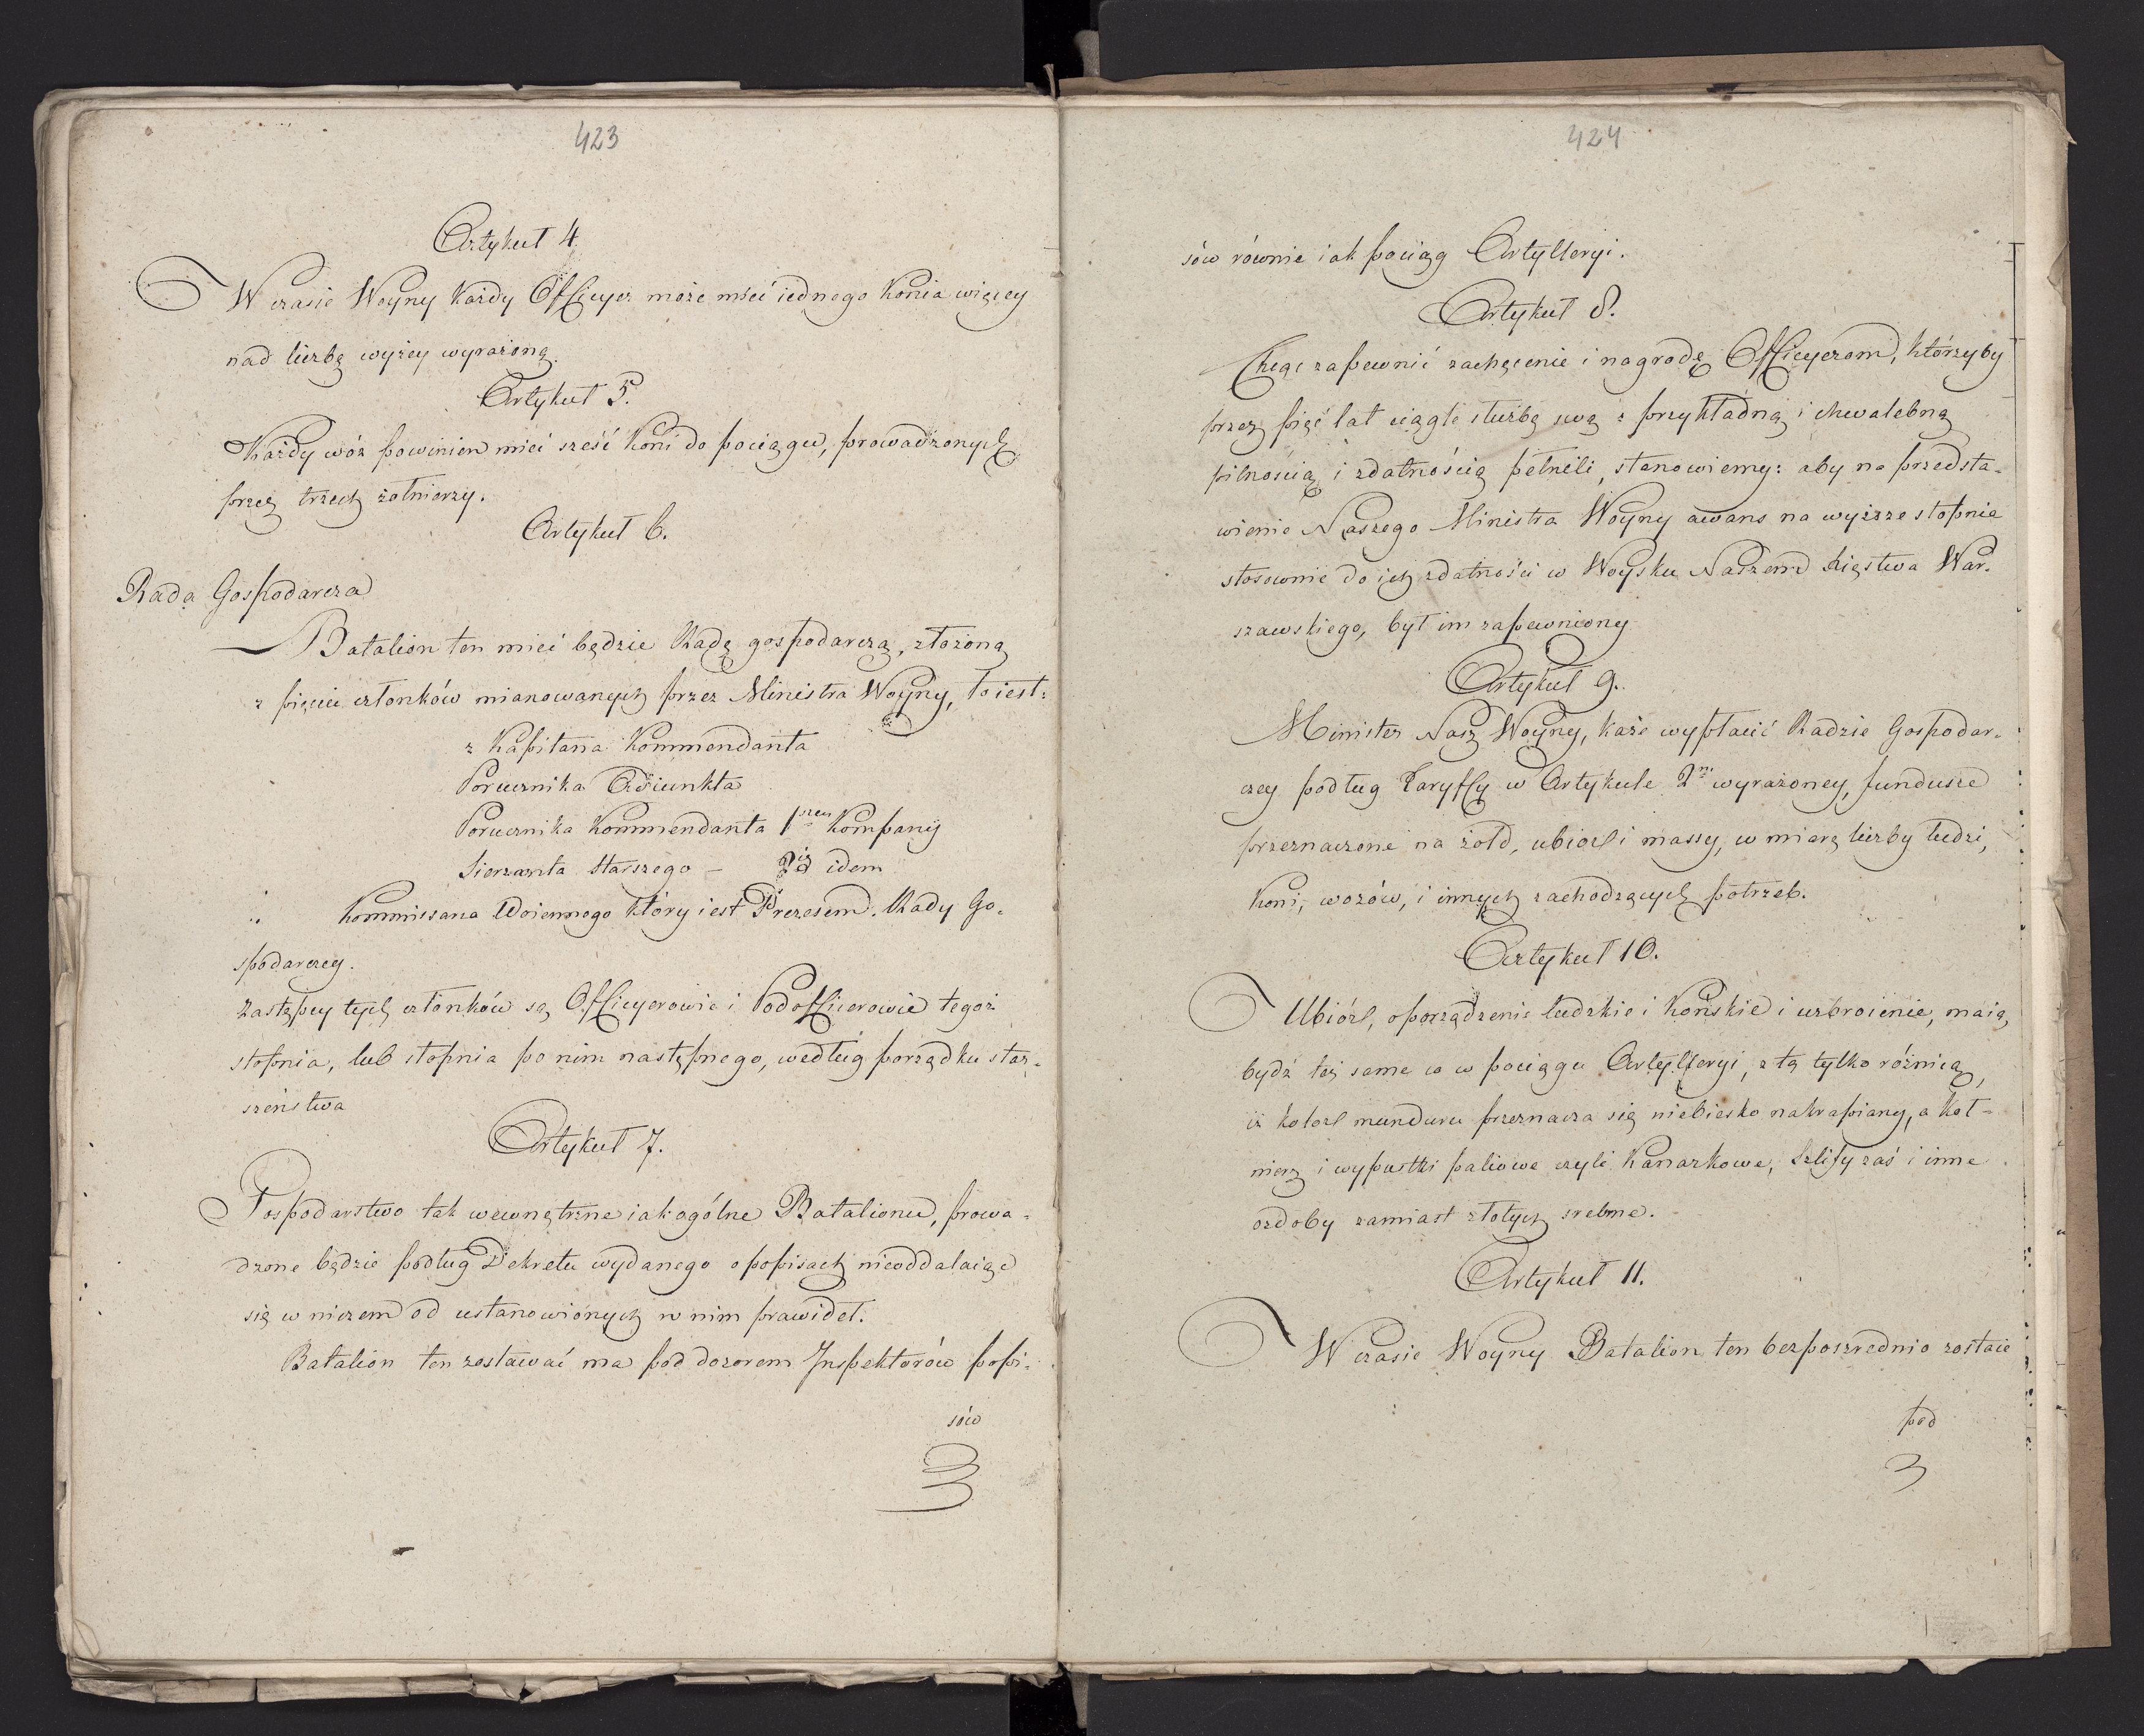 423
Artykuł 4.
W czasie Woyny każdy Officyer może mieć iednego konia więcey
nad liczbę wyżey wyrażoną.
Artykuł 5.
Każdy wóz powinien mieć sześć koni do pociągu, prowadzonych
przez trzech żołnierzy.
Artykuł 6.
Rada Gospodarcza
Batalion ten mieć będzie Radę gospodarczą, złożoną
z pięciu członków mianowanych przez Ministra Woyny, to iest:
z Kapitana Kommendanta
Porucznika Adiunkta
Porucznika Kommendanta 1szey Kompanij
Sierżanta Starszego – idem
Kommissarza Woiennego który iest Prezesem Rady Go-
spodarczey.
Zastępcy tych członków są Officyerowie i Podofficerowie tegoż
stopnia, lub stopnia po nim następnego, według porządku star-
szeństwa
Artykuł 7.
Gospodarstwo tak wewnętrzne iak ogólne Batalionu, prowa-
dzone będzie podług Dekretu wydanego o popisach nieoddalaiąc
się w niczem od ustanowionych w nim prawideł.
Batalion ten zostawać ma pod dozorem Inspektorów popi-
sów
424
sów równie iak pociąg Artylleryi.
Artykuł 8.
Chcąc zapewnić zachęcenie i nagrodę Officyerom, którzyby
przez pięć lat ciągle służbę swą z przykładną i chwalebną
pilnością i zdatnością pełnili, stanowiemy: aby na przedsta-
wienie Naszego Ministra Woyny awans na wyższe stopnie
stosownie do ich zdatności w Woysku Naszem Xięstwa War-
szawskiego, był im zapewniony
Artykuł 9.
Minister Nasz Woyny, każe wypłacić Radzie Gospodar-
czey podług Taryffy w Artykule 2m wyrażoney, fundusze
przeznaczone na żołd, ubiór i massy, w miarę liczby ludzi,
koni, wozów, i innych zachodzących potrzeb.
Artykuł 10.
Ubiór, oporządzenie ludzkie i końskie i uzbroienie, maią
bydź też same co w pociągu Artylleryi, z tą tylko różnicą,
iż kolor munduru przeznacza się niebiesko nakrapiany, a koł-
nierz i wypustki paliowe czyli kanarkowe, Szlify zaś i inne
ozdoby zamiast złotych srebrne.
Artykuł 11.
W czasie Woyny Batalion ten bezposzrednio zostaie
pod